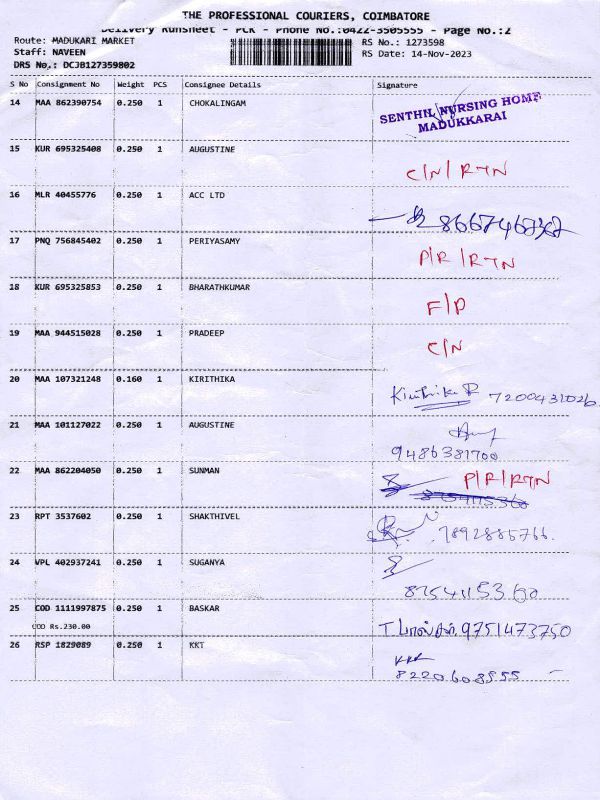 THE PROFESSIONAL COURIERS, COIMBATORE
Delivery Runsheet - PCR - Phone No.:0422-3505555 - Page No.:2
Route: MADUKARI MARKET
RS No.: 1273598
Staff: NAVEEN
RS Date: 14-Nov-2023
DRS No.: DCJB127359802
S No Consignment No Weight PCS Consignee Details Signature
14 MAA 862390754 0.250 1 CHOKALINGAM
SENTHIL NURSING HOME
MADUKKARAI
15 KUR 695325408 0.250 1 AUGUSTINE
C/N/RTN
16 MLR 40455776 0.250 1 ACC LTD
17 PNQ 756845402 0.250 1 PERIYASAMY
P/R/RTN
18 KUR 695325853 0.250 1 BHARATHKUMAR
F/D
19 MAA 944515028 0.250 1 PRADEEP
C/N
20 MAA 107321248 0.160 1 KIRITHIKA
Kirithika R 7200431026
21 MAA 101127022 0.250 1 AUGUSTINE
9486381700
22 MAA 862204050 0.250 1 SUNMAN
P/R/RTN
8754115360
23 RPT 3537602 0.250 1 SHAKTHIVEL
7892885766.
24 VPL 402937241 0.250 1 SUGANYA
8754115360
25 COD 1111997875 0.250 1 BASKAR
COD Rs.230.00
9751473750
26 RSP 1829089 0.250 1 KKT
KKR
8220608555